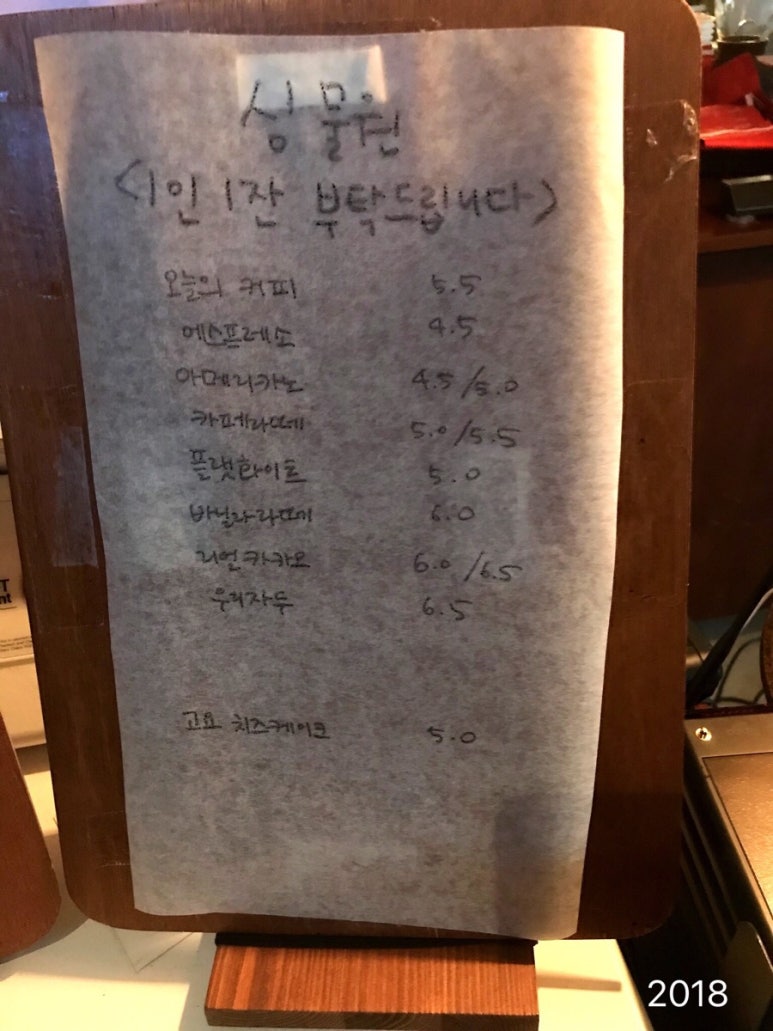 싱물원
<1인 1잔 부탁드립니다>
오늘의 커피 5.5
에스프레소 4.5
아메리카노 4.5/5.0
카페라떼 5.0/5.5
플랫화이트 5.0
바닐라라떼 6.0
리얼카카오 6.0/6.5
우리자두 6.5
고요 치즈케이크 5.0
2018